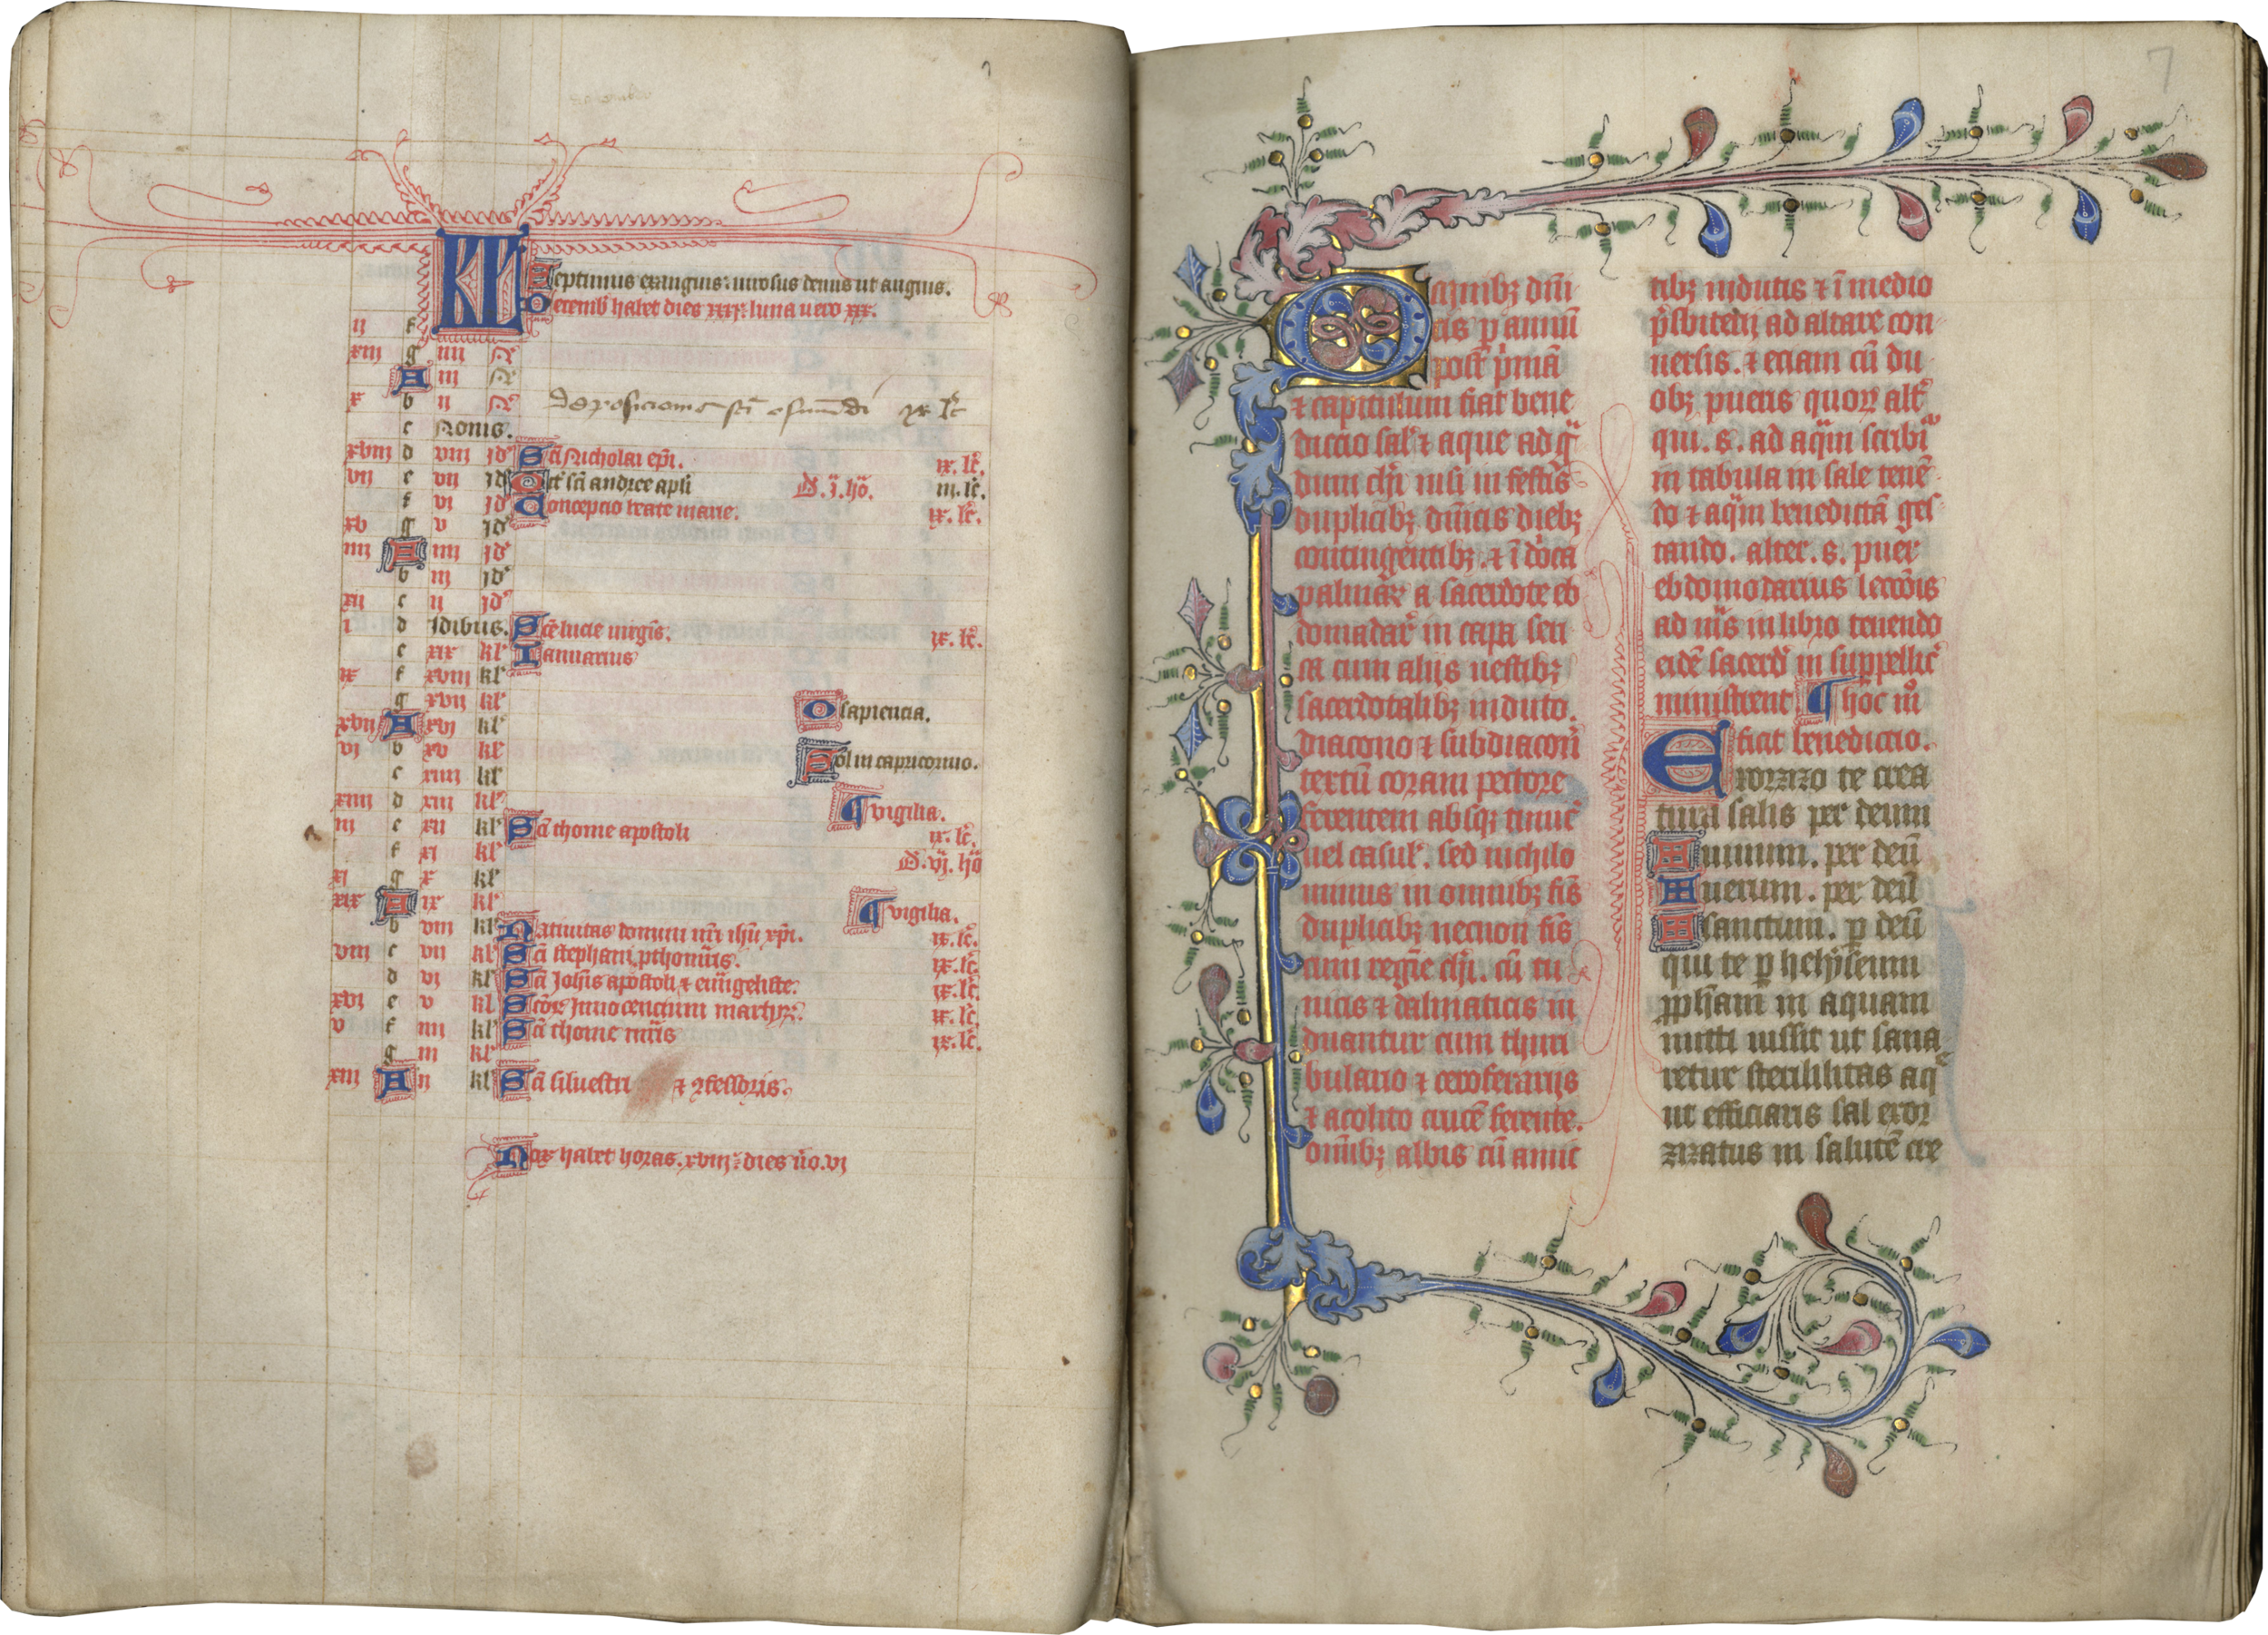 7
KL Septimus exanguis: uirosus denus ut anguis.
Decemb habet dies xxxj: luna uero xx.
ij f
xiij g iiij N
A iij N
x b ij N Deposicione sci osmundi ix lc
c Nonis.
xviij d viij id Sci Nicholai epi. ix. lc.
vij e vij id Oct sci andree apli D. j. ho. iij. lc.
f vj id Concepcio beate marie. ix. lc.
xv g v id
iiij A iiij id
b iij id
xij c ij id
i d Idibus. Sce lucie uirgis. ix. lc.
e xix kl Ianuarius
ix f xviij kl
g xvij kl O sapiencia.
xvij A xvj kl
vj b xv kl Sol in capricornio.
c xiiij kl
xiiij d xiij kl vigilia.
iij e xij kl Sci thome apostoli ix. lc.
f xj kl D. vj. ho
xj g x kl
xix A ix kl vigilia.
b viij kl Natiuitas domini nri ihu xpi. ix. lc.
viij c vij kl Sci stephani pthomris. ix. lc.
d vj kl Sci Johis apostoli & euugeliste. ix. lc.
xvj e v kl Scor Innocencium martyr. ix. lc.
v f iiij kl Sci thome mris ix. lc.
g iij kl
xiij A ij kl Sci siluestri & confessoris.
Nox habet horas. xviij: dies uo. vj
Omnibz dni
cis p annu
post prima
& capitulum fiat bene
diccio sal & aque ad gra
dum chi nisi in festis
duplicibz dnicis diebz
contingentibz. & i doica
palmar a sacerdote eb
domadar in capa seri
ca cum alijs uestibz
sacerdotalibz induto.
diacono & subdiacon
textu coram pectore
ferentem absqz tunic
uel casul. sed nichilo
minus in omnibz fis
duplicibz necnon fis
cum regie chi. cu tu
nicis & dalmaticis in
duantur cum thuri
bulario & ceroferarijs
& acolito cruce ferente.
omibz albis cu amic
tibz indutis & i medio
psbiterij ad altare con
uersis. & eciam cu du
obz pueris quor alt
qui. s. ad aqam scribi
in tabula in sale tene
do & aqam benedicta ges
tando. alter. s. puer
ebdomodarius leccois
ad mis in libro tenendo
eide sacerd in suppellic
ministrent ¶ hoc mo
fiat benediccio.
Exorzizo te crea
tura salis per deum
uiuum. per deu
uerum. per deu
sanctum. p deu
qui te p helyseum
ppham in aquam
mitti iussit ut sana
retur sterilitas aq
ut efficiaris sal exor
zizatus in salute cre